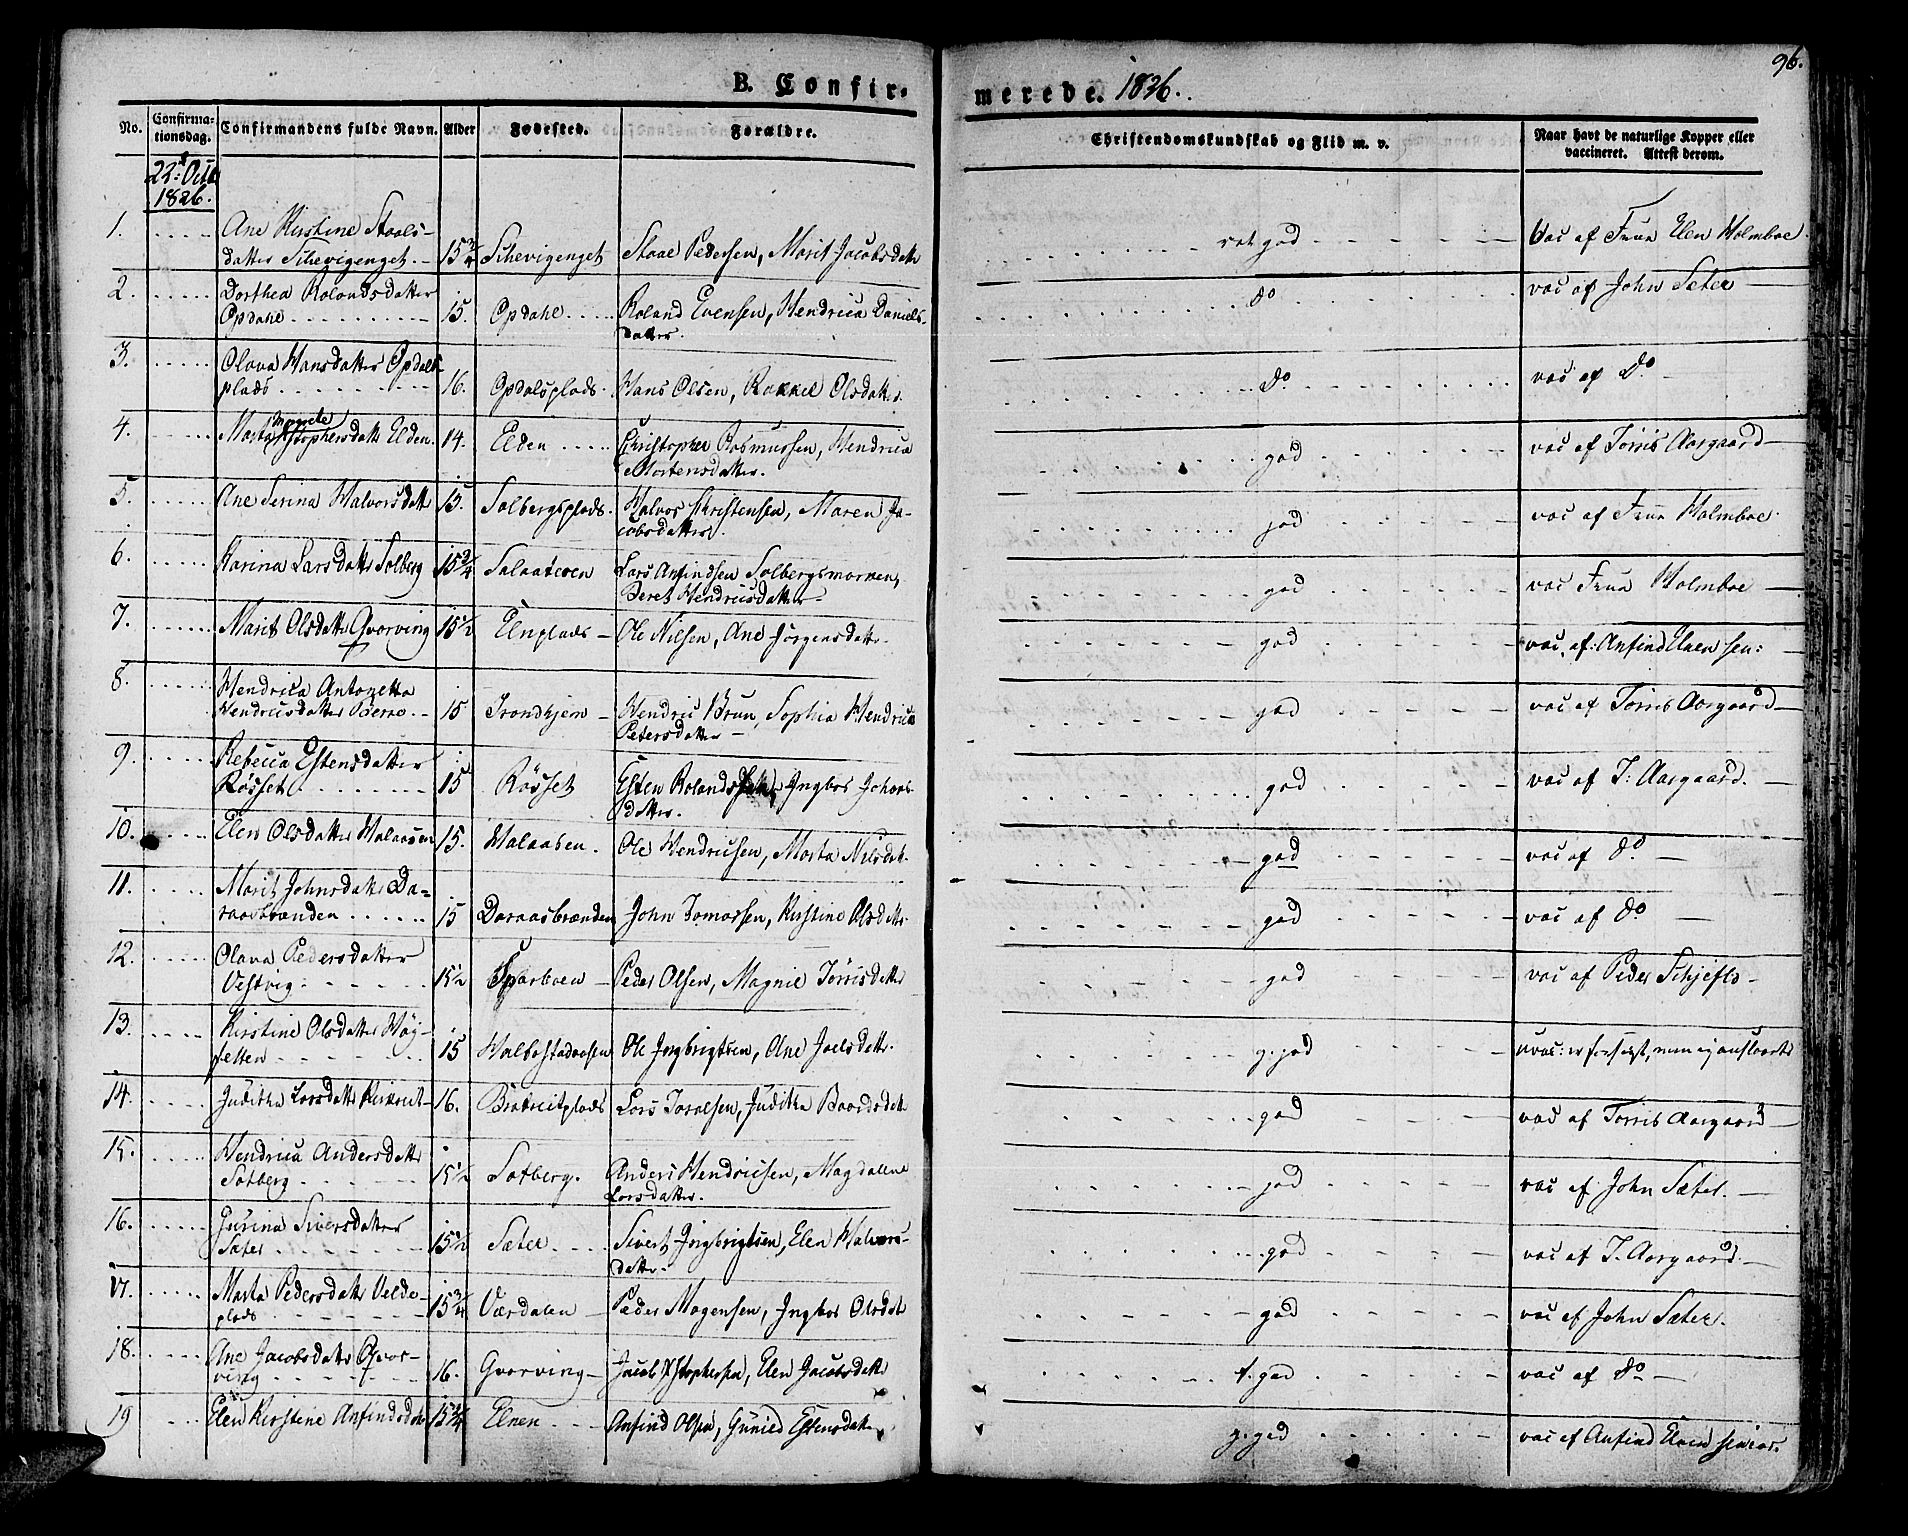 96.
B. Confir- merede. 1826.
No. Confirmationsdag. Confirmandens fulde Navn. Alder Fødested. Forældre. Christendomskundskab og Flid m. v. Naar havt de naturlige Kopper eller vaccineret. Attest derom.
22: Octb
1826.
1. Ane Kirstine Staals-
datter Schevigenget. 15 3/4 Schevigenget Staae Pedersen, Marit Jacobsdatt god vac af Frue Elen Holmboe.
2. Dorthea Rolandsdatter
Opdahl 15. Opdahl Roland Evensen, Hendrica Daniels-
datter. do vac af John Sæter
3. Olava Hansdatter Opdals-
plads 16. Opdalsplads Hans Olsen, Rakkel Olsdatter do vac af Do
4. Marta Margrete Xstophersdatt Elden. 14. Elden Christopher Rasmussen, Hendrica
Mortensdatter. god vac af Törris Aargaard
5. Ane Serina Halvorsdatt 15. Solbergsplads. Halvor Christensen, Maren Ja-
cobsdatter. god vac af Frue Holmboe.
6. Karina Larsdatt Solberg 15 3/4 Salaateien Lars Anfindsen Solbergsmarken,
Beret Hendricsdatter god vac Frue Holmboe
7. Marit Olsdatt Qvorving 15 1/2 Elnplads Ole Nilsen, Ane Jörgensdatter god vac. af: Anfind Elnen sen:
8. Hendrica Antonetta
Hendricsdatter 15 Trondhjem Hendric Brun, Sophia Hendrica
Petersdatter god vac af Törris Aargaard
9. Rebecca Estensdatter
Rösset 15 Rösset Esten Rolandsen, Ingbor Johans-
datter. god vac af T: Aargaard.
10. Elen Olsdatter Malaasen 15. Malaasen. Ole Hendricsen, Marta Nilsdat. god vac af do.
11. Marit Johnsdatt Da-
raasbrænden 15 Daraasbrænden John Tomassen, Kirstine Olsdatt god vac af do
12. Olava Pedersdatter
Vestvig 15 1/2 Sparboen Peder Olsen, Magnil Törrisdatter god vac af Peder Schjeflo
13. Kirstine Olsdatter Höy-
5 15 Halbostadaasen Ole Ingbrigtsen, Ane Joelsdatt. g. god er forsøgt, men ej
14. Juditha Larsdatt 16. Lars Toralsen, Juditha Baardsdat god vac af Törris Aargaard
15. Hendrica Andersdatt
Satberg 15 1/2 Satberg. Anders Hendricsen, Magdalena
Larsdatter. god vac af John Sæter.
16. Gurina Siversdatter
Sæter 15 1/2 Sæter Sivert Ingbrigtsen, Elen Halvors-
datter. god vac af T. Aargaard.
17. Marta Pedersdatt Velde-
plads 15 3/4 Værdalen Peder Mogensen, Ingbor Olsdat god vac af John Sæter.
18. Ane Jacobsdatt Qvor-
ving 16. Qvorving Jacob Xstophersen, Elen Jacobsdatt t. god vac af do
19 Elen Kirstine Anfindsdat 15 3/4 Elnen Anfind Olsen, Gunild Estensdatt g. god vac af Anfind Elnen senior.